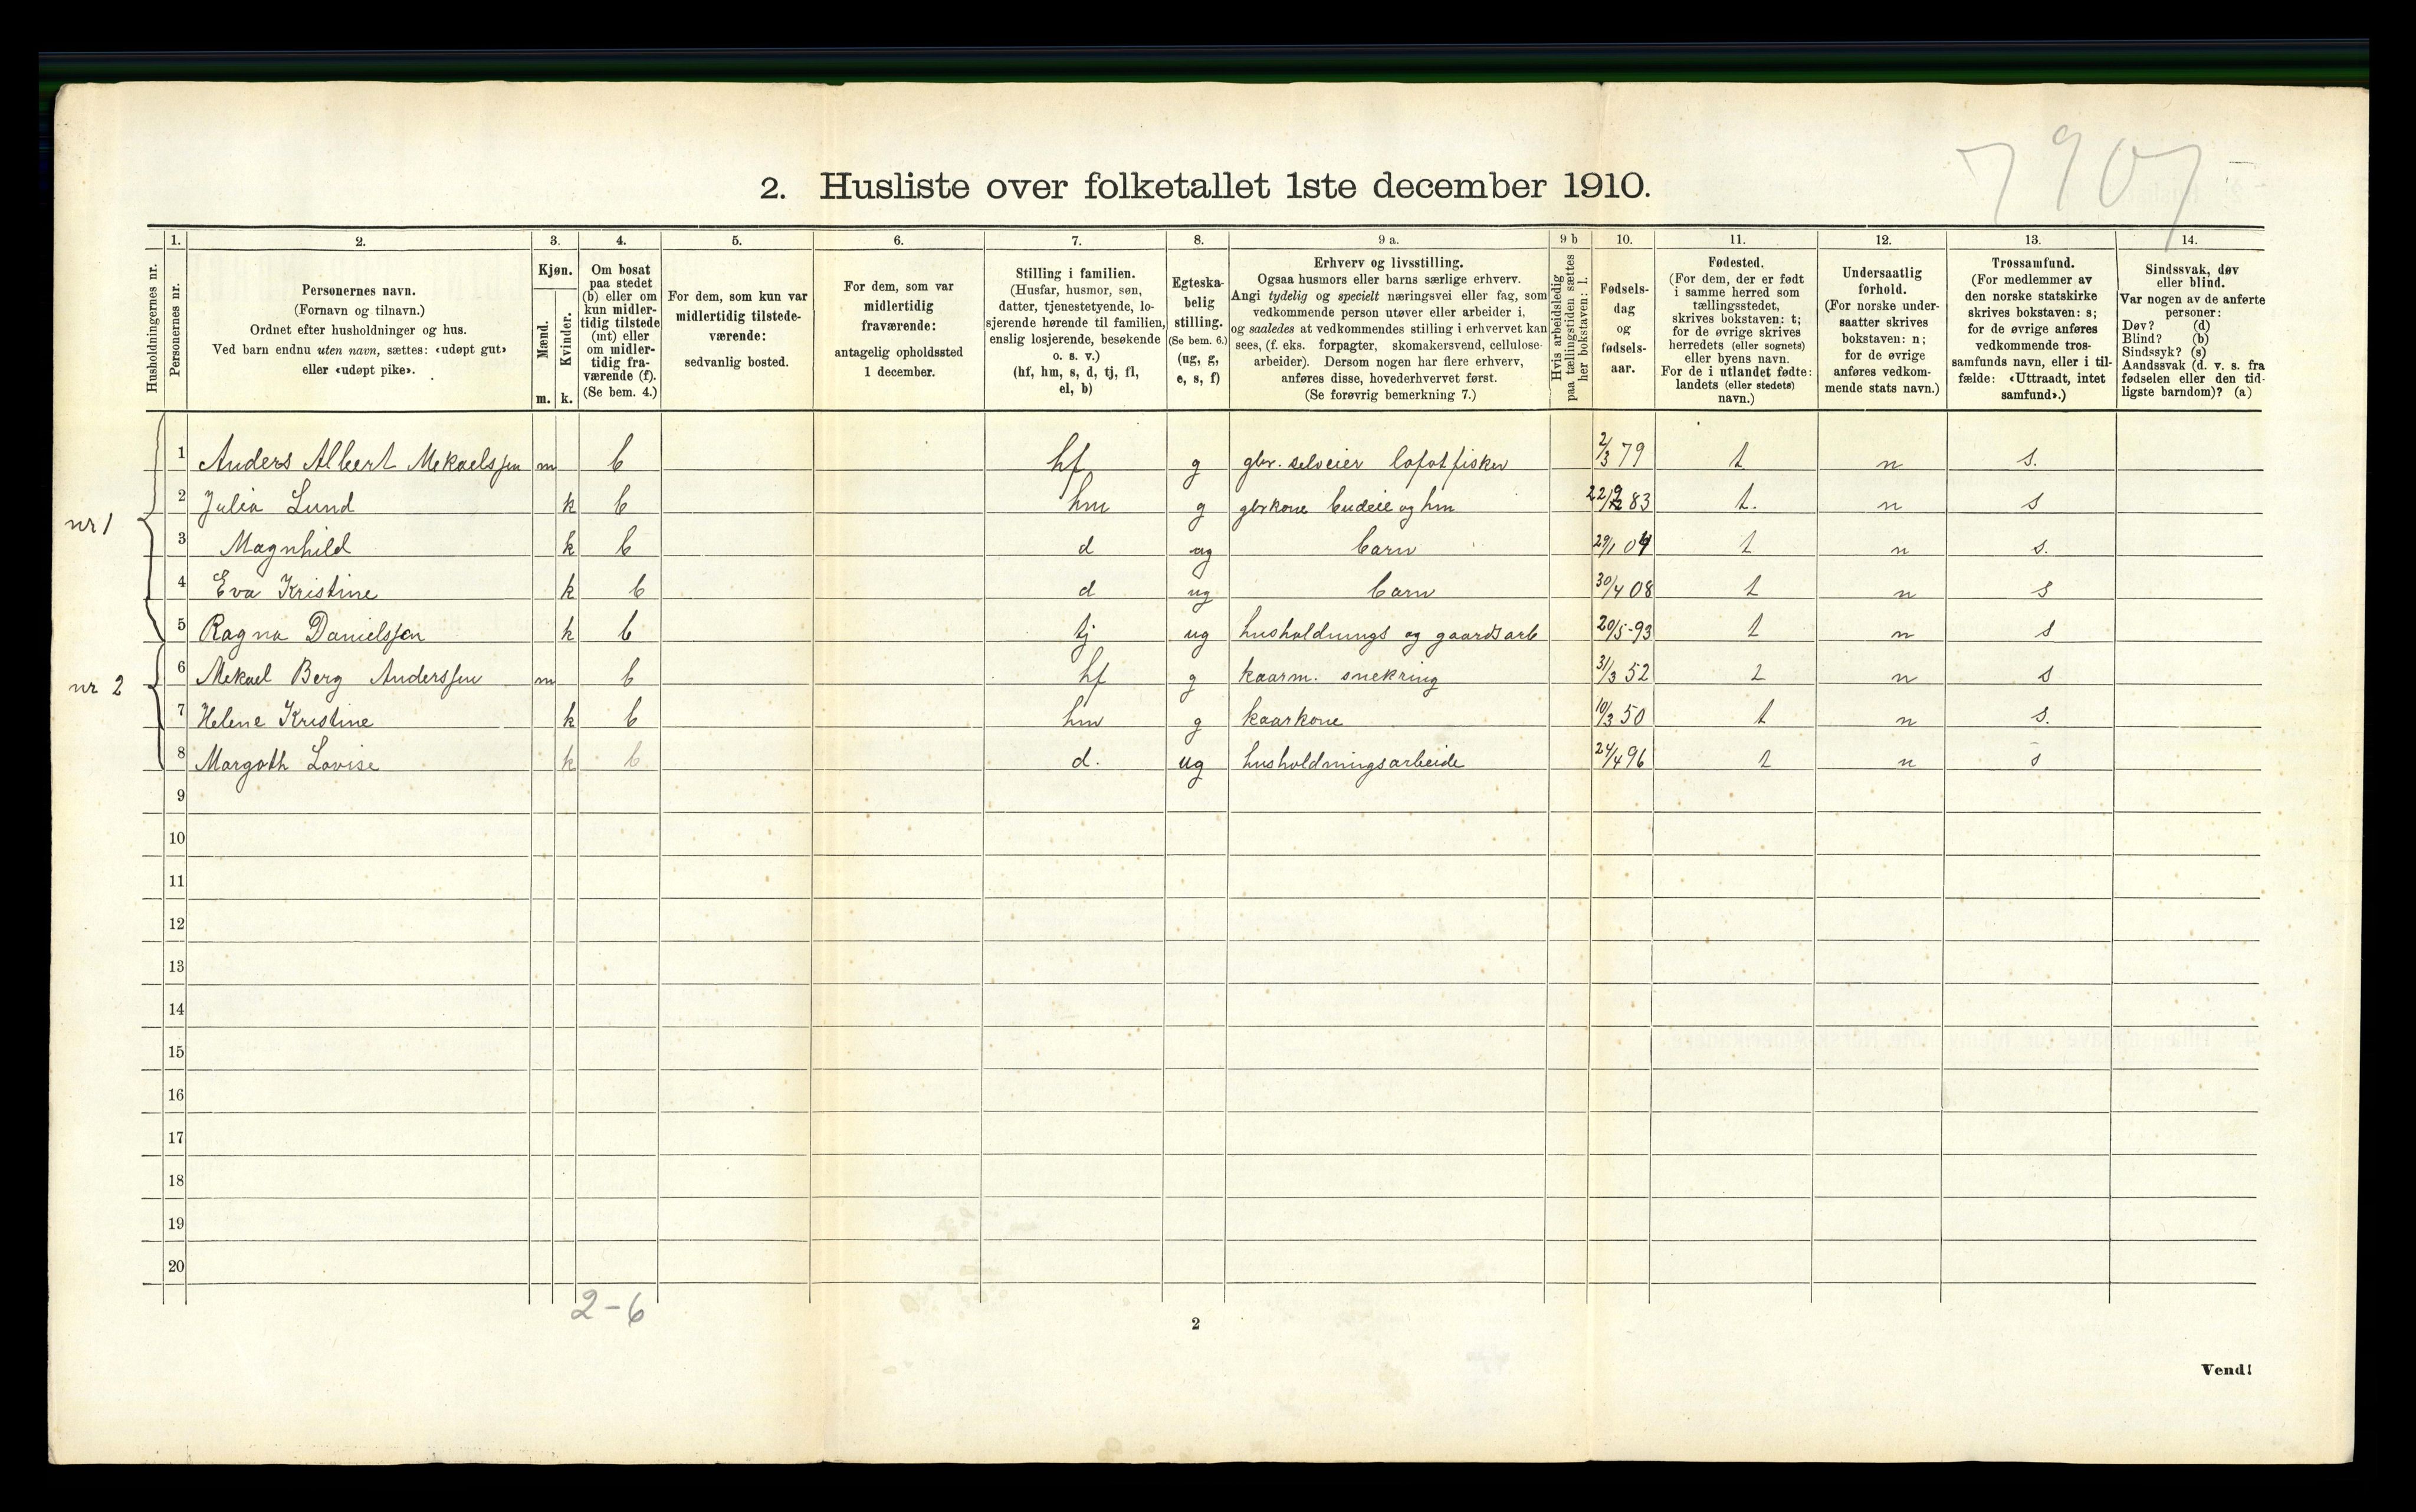 7907
2. Husliste over folketallet 1ste december 1910.
1. 2. 3. 4. 5. 6. 7. 8. 9 a. 9 b 10. 11. 12. 13. 14.
Husholdningernes nr.
Personernes nr.
Personernes navn.
(Fornavn og tilnavn.)
Ordnet efter husholdninger og hus.
Ved barn endnu uten navn, sættes: «udøpt gut»
eller «udøpt pike».
Kjøn.
Mænd.
Kvinder.
m. k.
Om bosat
paa stedet
(b) eller om
kun midler-
tidig tilstede
(mt) eller
om midler-
tidig fra-
værende (f).
(Se bem. 4.)
For dem, som kun var
midlertidig tilstede-
værende:
sedvanlig bosted.
For dem, som var
midlertidig
fraværende:
antagelig opholdssted
1 december.
Stilling i familien.
(Husfar, husmor, søn,
datter, tjenestetyende, lo-
sjerende hørende til familien,
enslig losjerende, besøkende
o. s. v.)
(hf, hm, s, d, tj, fl,
el, b)
Egteska-
belig
stilling.
(Se bem. 6.)
(ug, g,
e, s, f)
Erhverv og livsstilling.
Ogsaa husmors eller barns særlige erhverv.
Angi tydelig og specielt næringsvei eller fag, som
vedkommende person utøver eller arbeider i,
og saaledes at vedkommendes stilling i erhvervet kan
sees, (f. eks. forpagter, skomakersvend, cellulose-
arbeider). Dersom nogen har flere erhverv,
anføres disse, hovederhvervet først.
(Se forøvrig bemerkning 7.)
Hvis arbeidsledig
paa tællingstiden sættes
her bokstaven: l.
Fødsels-
dag
og
fødsels-
aar.
Fødested.
(For dem, der er født
i samme herred som
tællingsstedet,
skrives bokstaven: t;
for de øvrige skrives
herredets (eller sognets)
eller byens navn.
For de i utlandet fødte:
landets (eller stedets)
navn.)
Undersaatlig
forhold.
(For norske under-
saatter skrives
bokstaven: n;
for de øvrige
anføres vedkom-
mende stats navn.)
Trossamfund.
(For medlemmer av
den norske statskirke
skrives bokstaven: s;
for de øvrige anføres
vedkommende tros-
samfunds navn, eller i til-
fælde: «Uttraadt, intet
samfund».)
Sindssvak, døv
eller blind.
Var nogen av de anførte
personer:
Døv? (d)
Blind? (b)
Sindssyk? (s)
Aandssvak (d. v. s. fra
fødselen eller den tid-
ligste barndom)? (a)
1 Anders Albert Mekaelssen m b hf g gbr. selveier lofotfisker 2/3 79 t n s.
nr 1
2 Julia Lund k b hm g gbrkone budeie og hm 22/9 83 t. n s
3 Magnhild k b d ug barn 29/1 04 t n s.
4 Eva Kristine k b d ug barn 30/4 08 t n s
5 Ragna Danielssen k b tj ug husholdnings og gaardsarb 20/5-93 t n s
nr 2
6 Mekael Berg Anderssen m b hf g kaarm. snekring 31/3 52 t n s
7 Helene Kristine k b hm g kaarkone 10/3 50 t n s.
8 Margoth Lovise k b d. ug husholdningsarbeide 24/4 96 t n s
9
10
11
12
13
14
15
16
17
18
19
20
2-6
2
Vend!